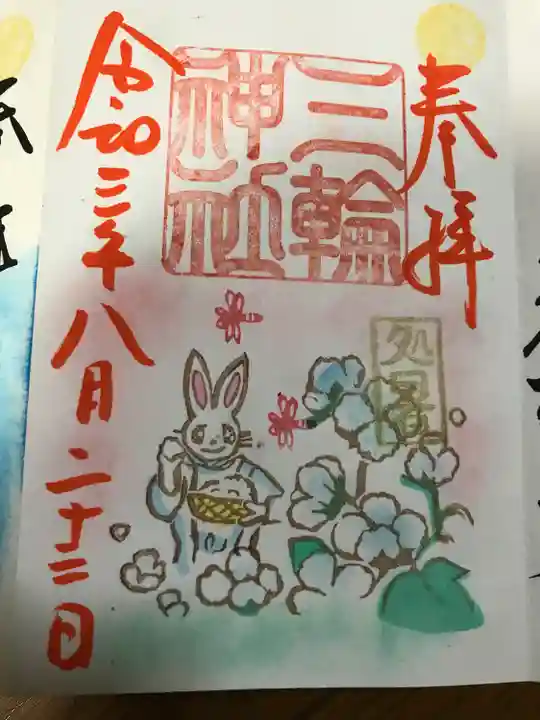 奉拝
三輪
神社
処暑
令和三年八月二十二日